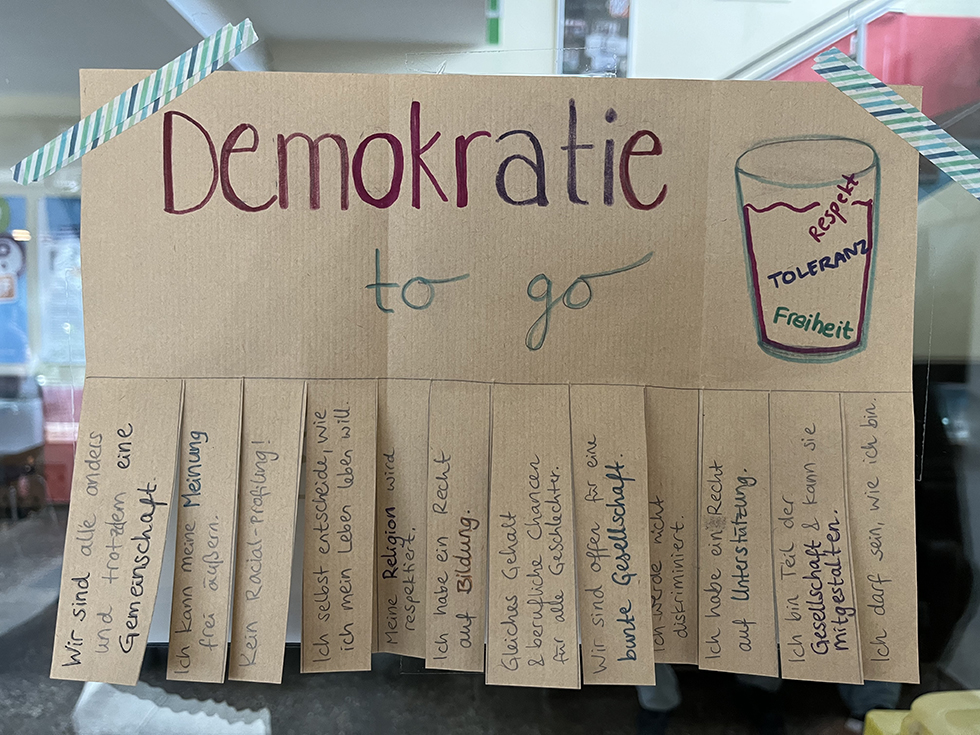 Demokratie
to go
Respekt
TOLERANZ
Freiheit
Wir sind alle anders
und trotzdem eine
Gemeinschaft.
Ich kann meine Meinung
frei äußern.
Kein Racial-Profiling!
Ich selbst entscheide, wie
ich mein Leben leben will.
Meine Religion wird
respektiert.
Ich habe ein Recht
auf Bildung.
Gleiches Gehalt
& berufliche Chancen
für alle Geschlechter.
Wir sind offen für eine
bunte Gesellschaft.
Ich werde nicht
diskriminiert.
Ich habe ein Recht
auf Unterstützung.
Ich bin Teil der
Gesellschaft & kann sie
mitgestalten.
Ich darf sein, wie ich bin.